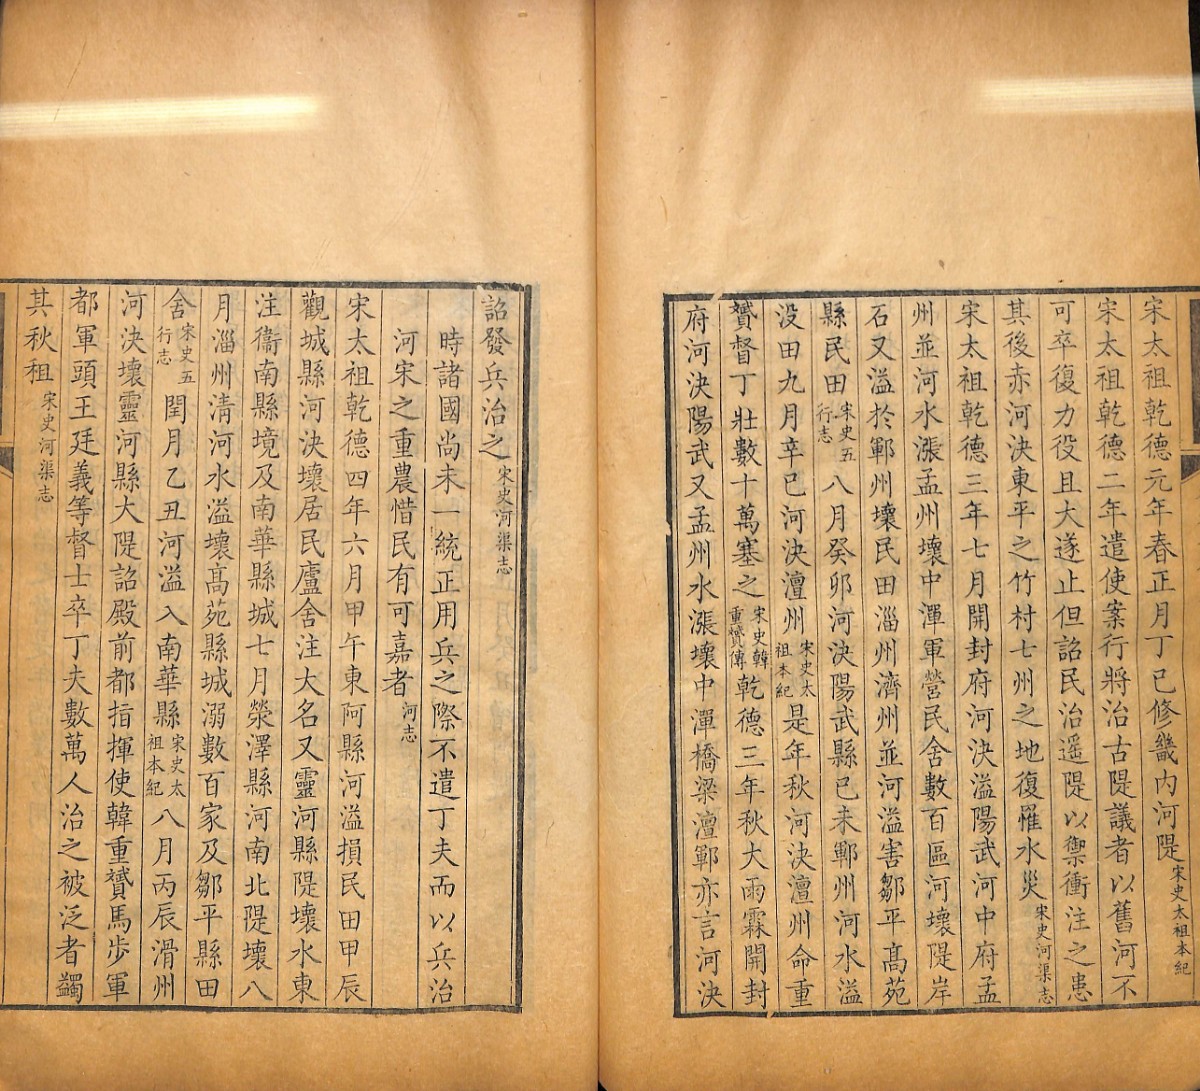 宋太祖乾德元年春正月丁巳修畿内河隄宋史太祖本紀
宋太祖乾德二年遣使案行將治古隄議者以舊河不
可卒復力役且大遂止但詔民治遥隄以禦衝注之患
其後赤河決東平之竹村七州之地復罹水災宋史河渠志
宋太祖乾德三年七月開封府河決溢陽武河中府孟
州並河水漲孟州壞中潬軍營民舍數百區河壞隄岸
石又溢於鄆州壞民田淄州濟州並河溢害鄒平髙苑
縣民田宋史五行志八月癸卯河決陽武縣已未鄆州河水溢
没田九月辛已河決澶州宋史太祖本紀是年秋河決澶州命重
贇督丁壯數十萬塞之宋史韓重贇傳乾德三年秋大雨霖開封
府河決陽武又孟州水漲壞中潬橋梁澶鄆亦言河決
詔發兵治之宋史河渠志
時諸國尚未一統正用兵之際不遣丁夫而以兵治
河宋之重農惜民有可嘉者河志
宋太祖乾德四年六月甲午東阿縣河溢損民田甲辰
觀城縣河決壞居民廬舍注大名又靈河縣隄壞水東
注衞南縣境及南華縣城七月滎澤縣河南北隄壞八
月淄州清河水溢壞髙苑縣城溺數百家及鄒平縣田
舍宋史五行志閏月乙丑河溢入南華縣宋史太祖本紀八月丙辰滑州
河決壞靈河縣大隄詔殿前都指揮使韓重贇馬步軍
都軍頭王廷義等督士卒丁夫數萬人治之被泛者蠲
其秋租宋史河渠志